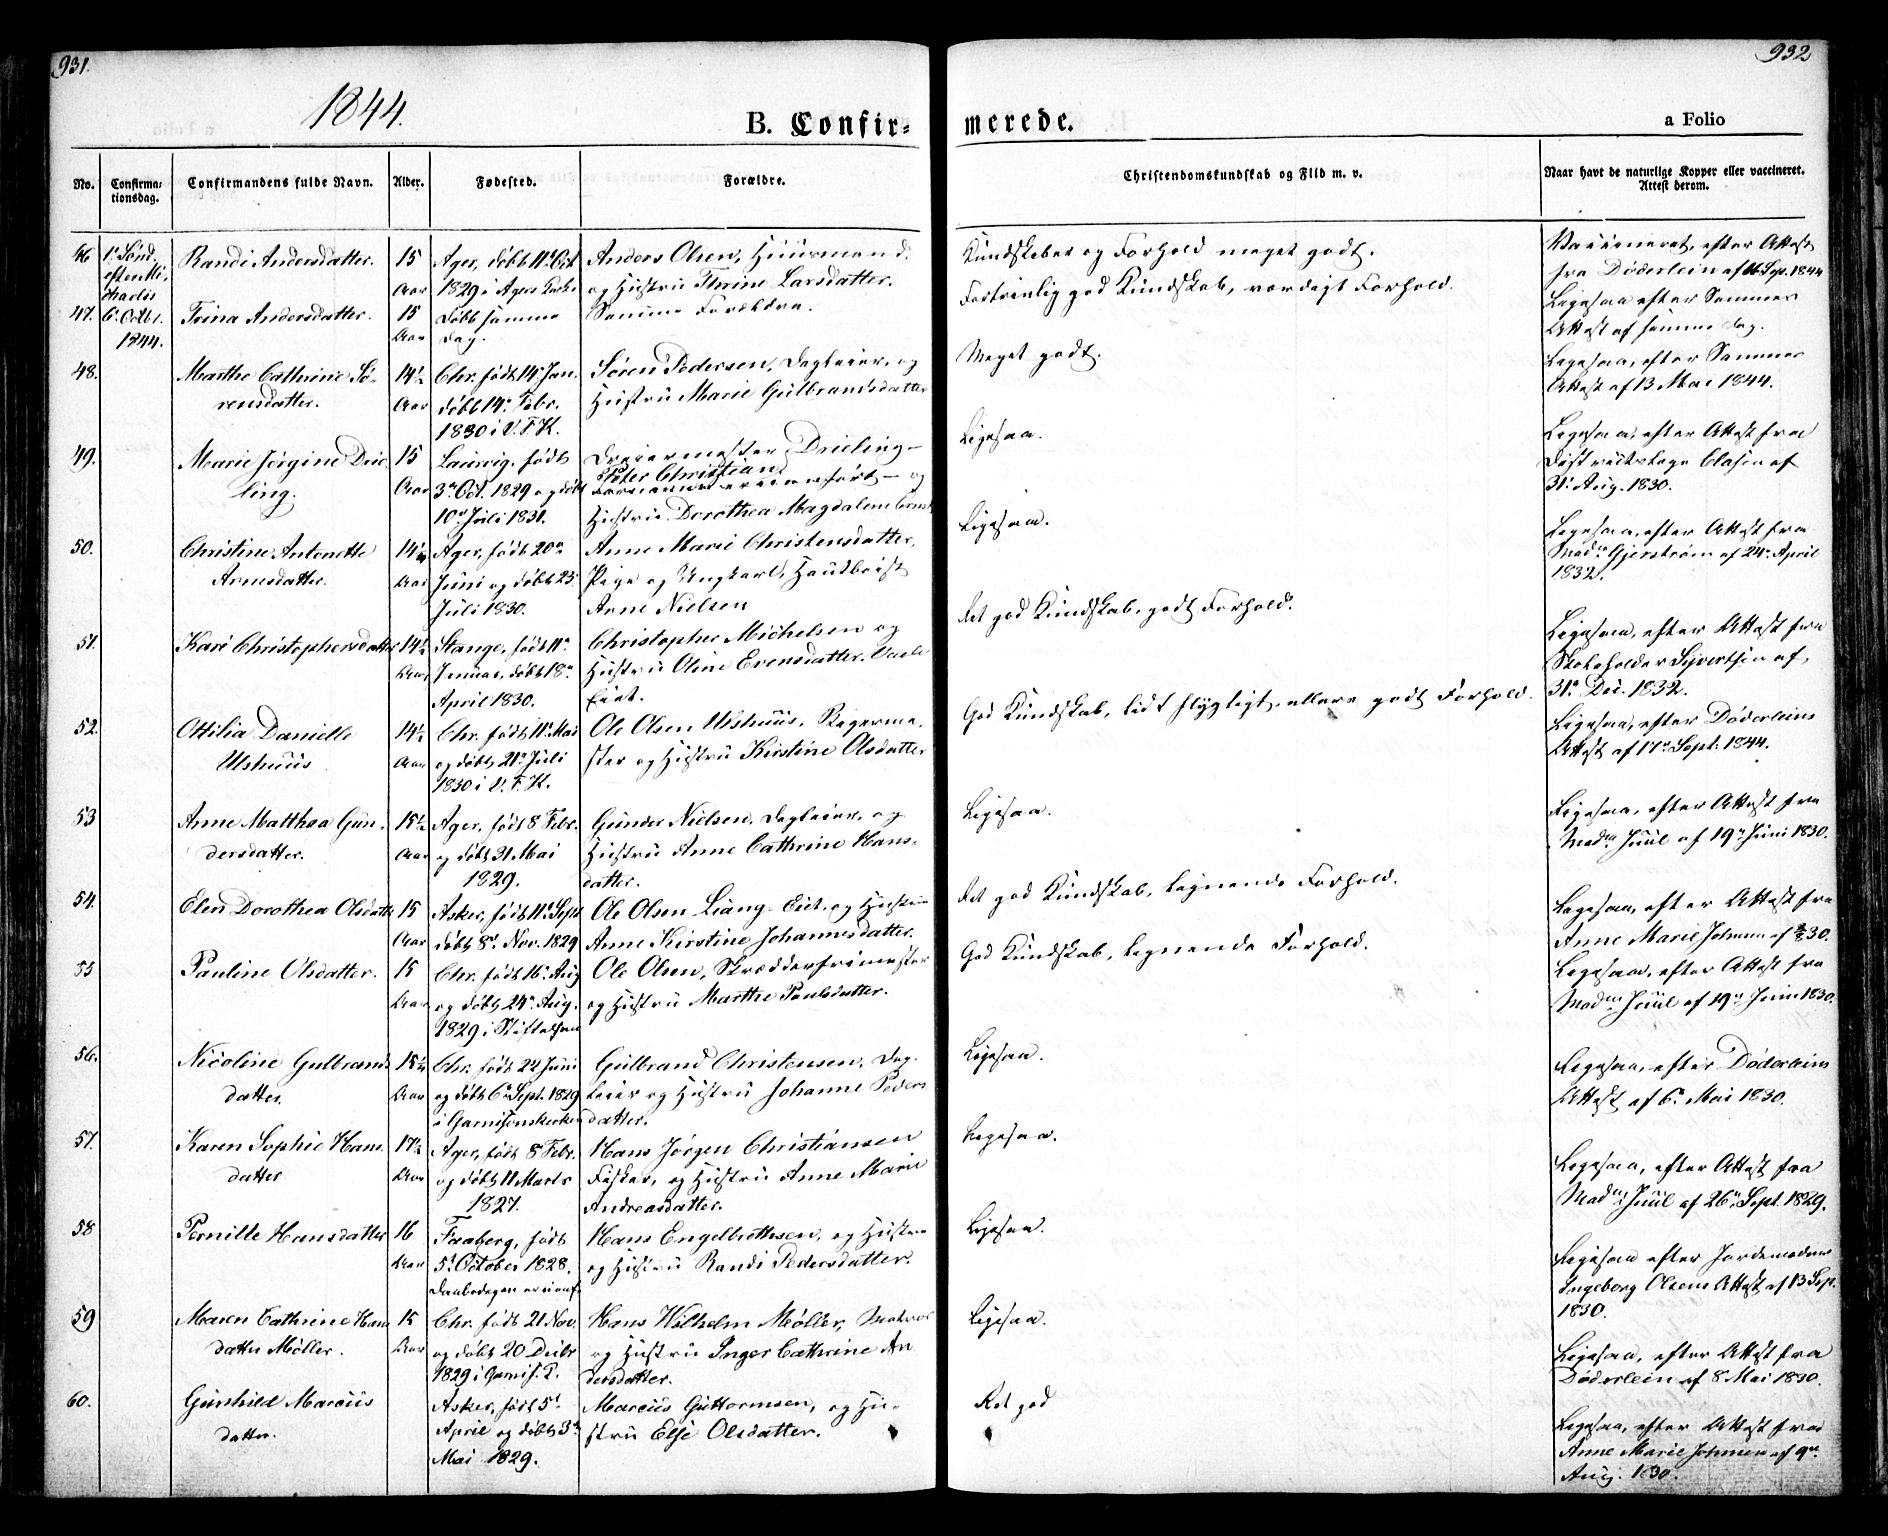 931.
932
1844.
B. Confir-
merede.
a Folio
No.
Confirma-
tionsdag.
Confirmandens fulde Navn.
Alder.
Fødested.
Forældre.
Christendomskundskab og Flid m. v.
Naar havt de naturlige Kopper eller vaccineret.
Attest derom.
46 1ste Sønd. Randi Andersdatter. 15 Ager, døbt 11te Oct Anders Olsen, Huusmand, Kundskaber og Forhold meget godt. Vaccineret, efter Attest
efter Mi- Aar 1829 i Agers Kirke og Hustru Thrine Larsdatter. Fortrinlig god Kundskab, værdigt Forhold. fra Døderlein af 16 Sept. 1844
chaelis
47. 6te Octbr. Trina Andersdatter. 15 døbt samme Samme Forældre. Ligesaa efter Sammes
1844. Aar Dag. Attest af samme Dag.
48. Marthe Cathrine Sø- 14½ Chr. født 14de Jan. Søren Pedersen, Dagleier, og Meget godt. Ligesaa, efter Sammes
rensdatter. Aar døbt 14de Febr. Hustru Marie Gulbrandsdatter Attest af 13 Mai 1844.
1830 i V. F. K.
49. Marie Jørgine Drie- 15 Laurvig, født Dreiermester Drieling- Ligesaa. Ligesaa, efter Attest fra
ling. Aar 3die Oct. 1829 og døbt Peter Christian og Districtslæge Clasen af
10de Juli 1831. Hustru Dorothea Magdalene 31te Aug. 1830.
50. Christine Antonette 14½ Ager, født 20de Anne Marie Christensdatter, Ligesaa. Ligesaa, efter Attest fra
Arnesdatter. Aar Juni og døbt 25 Pige og Ungkarl, Hautboist Madme Gjerstrøm af 24de April
Juli 1830. Arne Nielsen 1832.
51. Kari Christophersdatter 14½ Stange, født 11te Christopher Michelsen og Ret god Kundskab, godt Forhold. Ligesaa, efter Attest fra
Aar Januar, døbt 18de Hustru Oline Evensdatter. Skoleholder Syvertsen af
April 1830. Eiet. 31te Dec. 1832.
52. Ottilia Danielle 14½ Chr. født 11te Mai Ole Olsen Ulshuus, God Kundskab, lidt flygtigt, ellers godt Forhold. Ligesaa, efter Døderleins
Ulshuus Aar og døbt 21de Juli ster og Hustru Kirstine Olsdatter Attest af 17de Sept. 1844.
1830 i V. F. K.
53 Anne Matthea Gun- 15½ Ager, født 8 Febr. Gunder Nielsen, Dagleier, og Ligesaa. Ligesaa, efter Attest fra
dersdatter. Aar og døbt 31 Mai Hustru Anne Cathrine Hans- Madme Juul af 19de Juni 1830.
1829. datter.
54. Elen Dorothea Olsdatter 15 Asker, født 11te Sept Ole Olsen Liang-Eiet, og Hustru Ret god Kundskab, lignende Forhold. Ligesaa, efter Attest fra
Aar døbt 8de Nov. 1829 Anne Kirstine Johannesdatter. Anne Marie Johnsen af
55 Pauline Olsdatter. 15 Chr. født 16de Aug Ole Olsen, Skrædderfrimester God Kundskab, lignende Forhold. Ligesaa, efter Attest fra
Aar og døbt 24de Aug. og Hustru Marthe Paulsdatter. Madme Juul af 19de Juni 1830.
1829 i Stiftelsen
56. Nicoline Gulbrands- 15½ Chr. født 22 Juni Gulbrand Christensen, Dag- Ligesaa. Ligesaa, efter Døderleins
datter. Aar og døbt 6te Sept. 1829 leier og Hustru Johanne Peders Attest af 6te Mai 1830.
i Garnisonskirken datter.
57. Karen Sophie Hans- 17½ Ager, født 8de Febr. Hans Jørgen Christiansen Ligesaa. Ligesaa, efter Attest fra
datter Aar og døbt 11 Marts Fisker, og Hustru Anne Marie Madme Juul af 26de Sept. 1829.
1827. Andreasdatter.
58 Pernille Hansdatter 16 Faaberg, født Hans Engelbrethsen, og Hustru Ligesaa. Ligesaa efter Jordemoder
Aar 5te October 1828. og Hustru Randi Pedersdatter. Ingeborg Olsens Attest af 13 Sept.
Daabsdagen er uanf. 1830.
59 Maren Cathrine Hans 15 Chr. født 21 Nov. Hans Wilhelm Møller, Matros Ligesaa. Ligesaa, efter Attest fra
datter Møller. Aar og døbt 20 Decbr og Hustru Inger Cathrine An Døderlein af 8 Mai 1830.
1829 i Garnis. K. dersdatter.
60. Gunhild Marcus Asker, født 5te Marcus Guttormsen, og Hu- Ret god Ligesaa, efter Attest fra
datter. April og døbt 3die stru Else Olsdatter. Anne Marie Johnsen af 9de
Mai 1829. Aug. 1830.